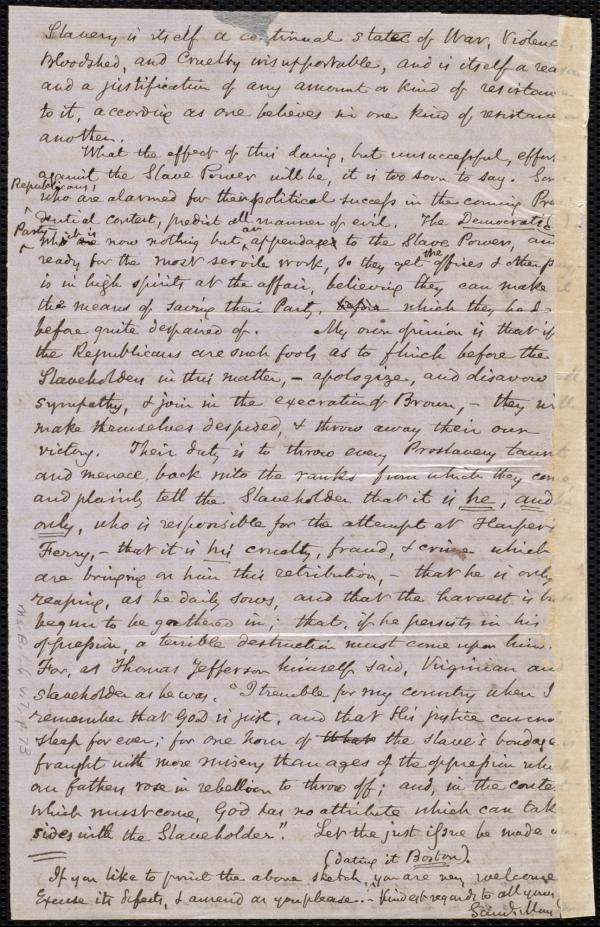 Slavery is itself a continual state of War, Violence,
Bloodshed, and Cruelty insupportable, and is itself a reason
and a justification of any amount or kind of resistance
to it, according as one believes in one kind of resistance
another.
What the effect of this daring, but unsuccessful, effort
against the Slave Power will be, it is too soon to say. Some
Republicans,
who are alarmed for their political success in the coming Presi-
dential contest, predict all manner of evil. The Democratic
Party which is now nothing but an appendage to the Slave Power, and
ready for the most servile work, so they get the offices & other
is in high spirits at the affair, believing they can make
the means of saving their Party, which they had
before quite despaired of. My own opinion is that if
the Republicans are such fools as to flinch before the
Slaveholders in this matter, – apologize, and disavow
sympathy, & join in the execration of Brown, – they will
make themselves despised, & throw away their own
victory. Their duty is to throw every Proslavery taunt
and menace back into the ranks from which they come,
and plainly tell the Slaveholder that it is he, and
only, who is responsible for the attempt at Harper's
Ferry, – that it is his cruelty, fraud, & crime which
are bringing on him this retribution, – that he is only
reaping, as he daily sows, and that the harvest is but
begun to be gathered in; that, if he persists in his
oppression, a terrible destruction must come upon him.
For, as Thomas Jefferson himself said, Virginian and
slaveholder as he was, "I tremble for my country when I
remember that God is just, and that His justice cannot
sleep for ever; for one hour of the slave's bondage
fraught with more misery than ages of the oppression which
our fathers rose in rebellion to throw off; and, in the contest
which must come, God has no attribute which can take
sides with the Slaveholder". Let the just issue be made
(dating it Boston).
If you like to print the above sketch, you are very welcome
Excuse its defects, & amend as you please. – Kindest regards to all yours
Saml. May